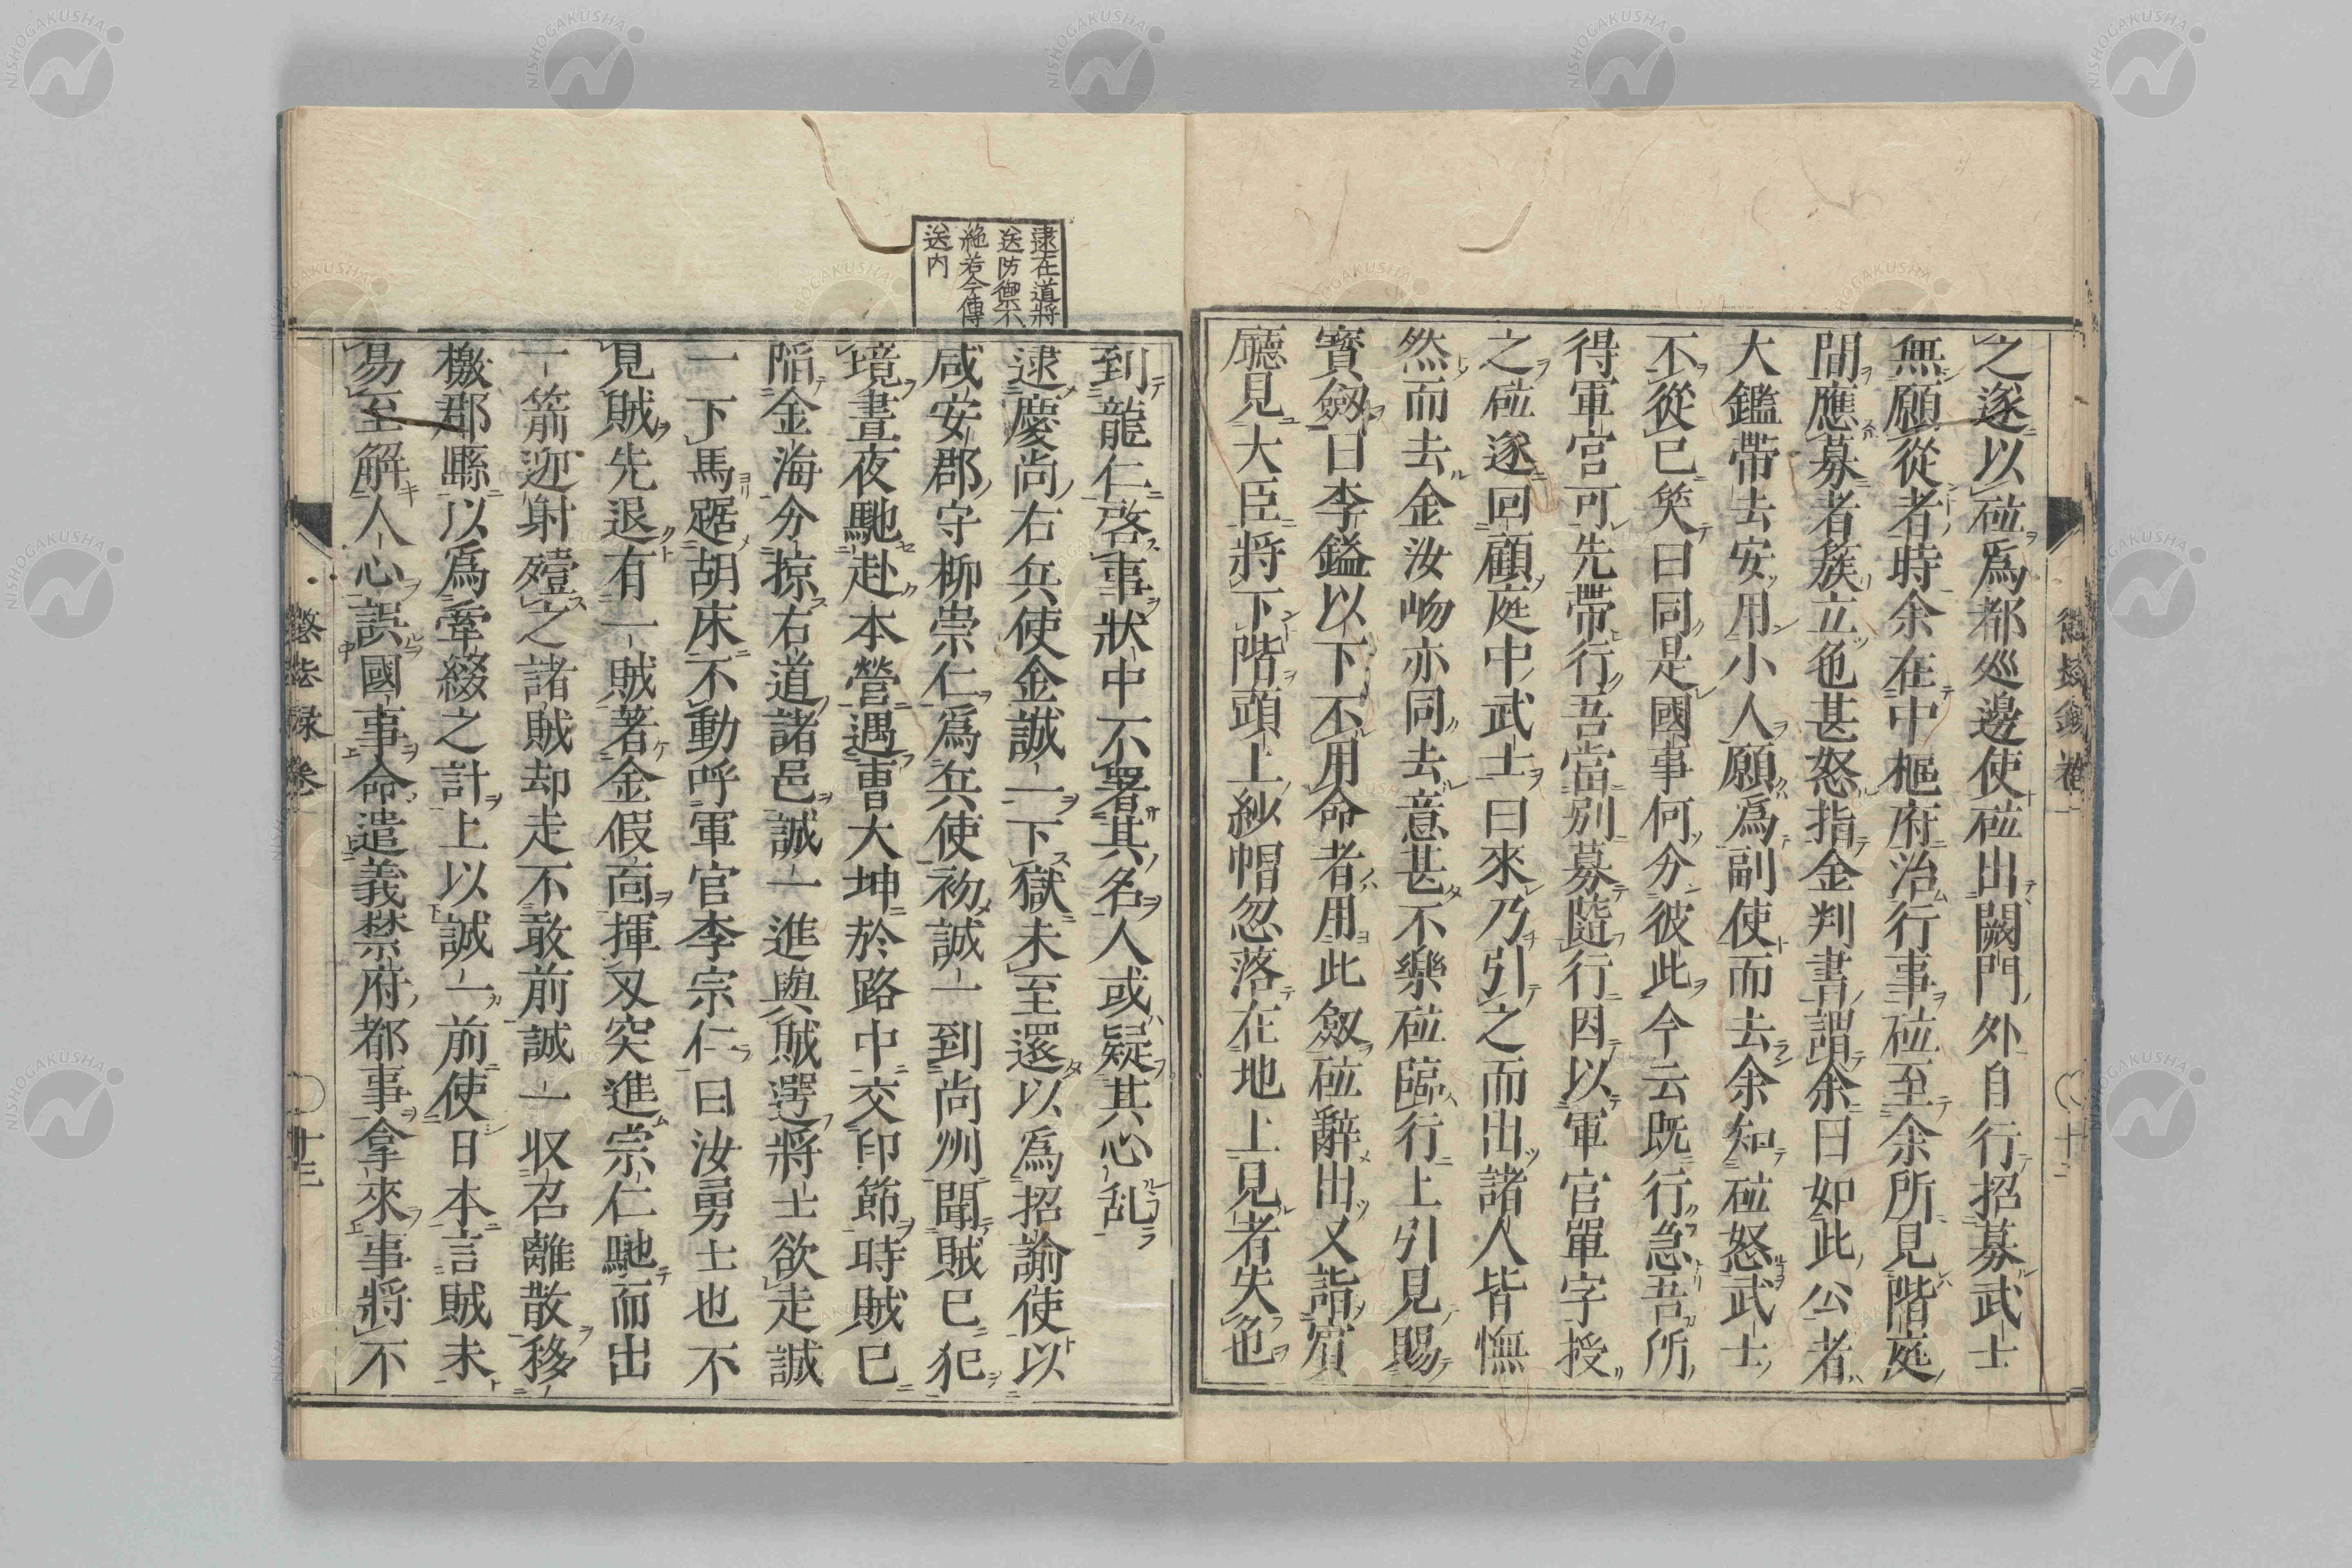 之遂以砬爲都巡邊使砬出闕門外自行招募武士
無願從者時余在中樞府治行事砬至余所見階庭
間應募者簇立色甚怒指金判書謂余曰如此公者
大鑑帶去安用小人願爲副使而去余知砬怒武士
不從已笑曰同是國事何分彼此今云既行急吾所
得軍官可先帶行吾當別募隨行因以軍官單字授
之砬遂回顧庭中武士曰來乃引之而出諸人皆憮
然而去金汝岉亦同去意甚不樂砬臨行上引見賜
寶劔曰李鎰以下不用命者用此劔砬辭出又詣賔
廳見大臣將下階頭上紗帽忽落在地上見者失色
懲毖録卷一
十二
逮在道將
送防禦不
絶若今傳
送内
到龍仁啓事狀中不署其名人或疑其心乱
逮慶尚右兵使金誠一下獄未至還以爲招諭使以
咸安郡守柳崇仁爲兵使初誠一到尚州聞賊已犯
境晝夜馳赴本營遇曺大坤於路中交印節時賊已
陷金海分掠右道諸邑誠一進與賊遌將士欲走誠
一下馬踞胡床不動呼軍官李宗仁曰汝勇士也不
見賊先退有一賊著金假面揮刄突進宗仁馳而出
一箭迎射殪之諸賊却走不敢前誠一収召離散移
檄郡縣以爲牽綴之計上以誠一前使日本言賊未
易至解人心誤國事命遣義禁府都事拿來事將不
懲毖録卷一
十三